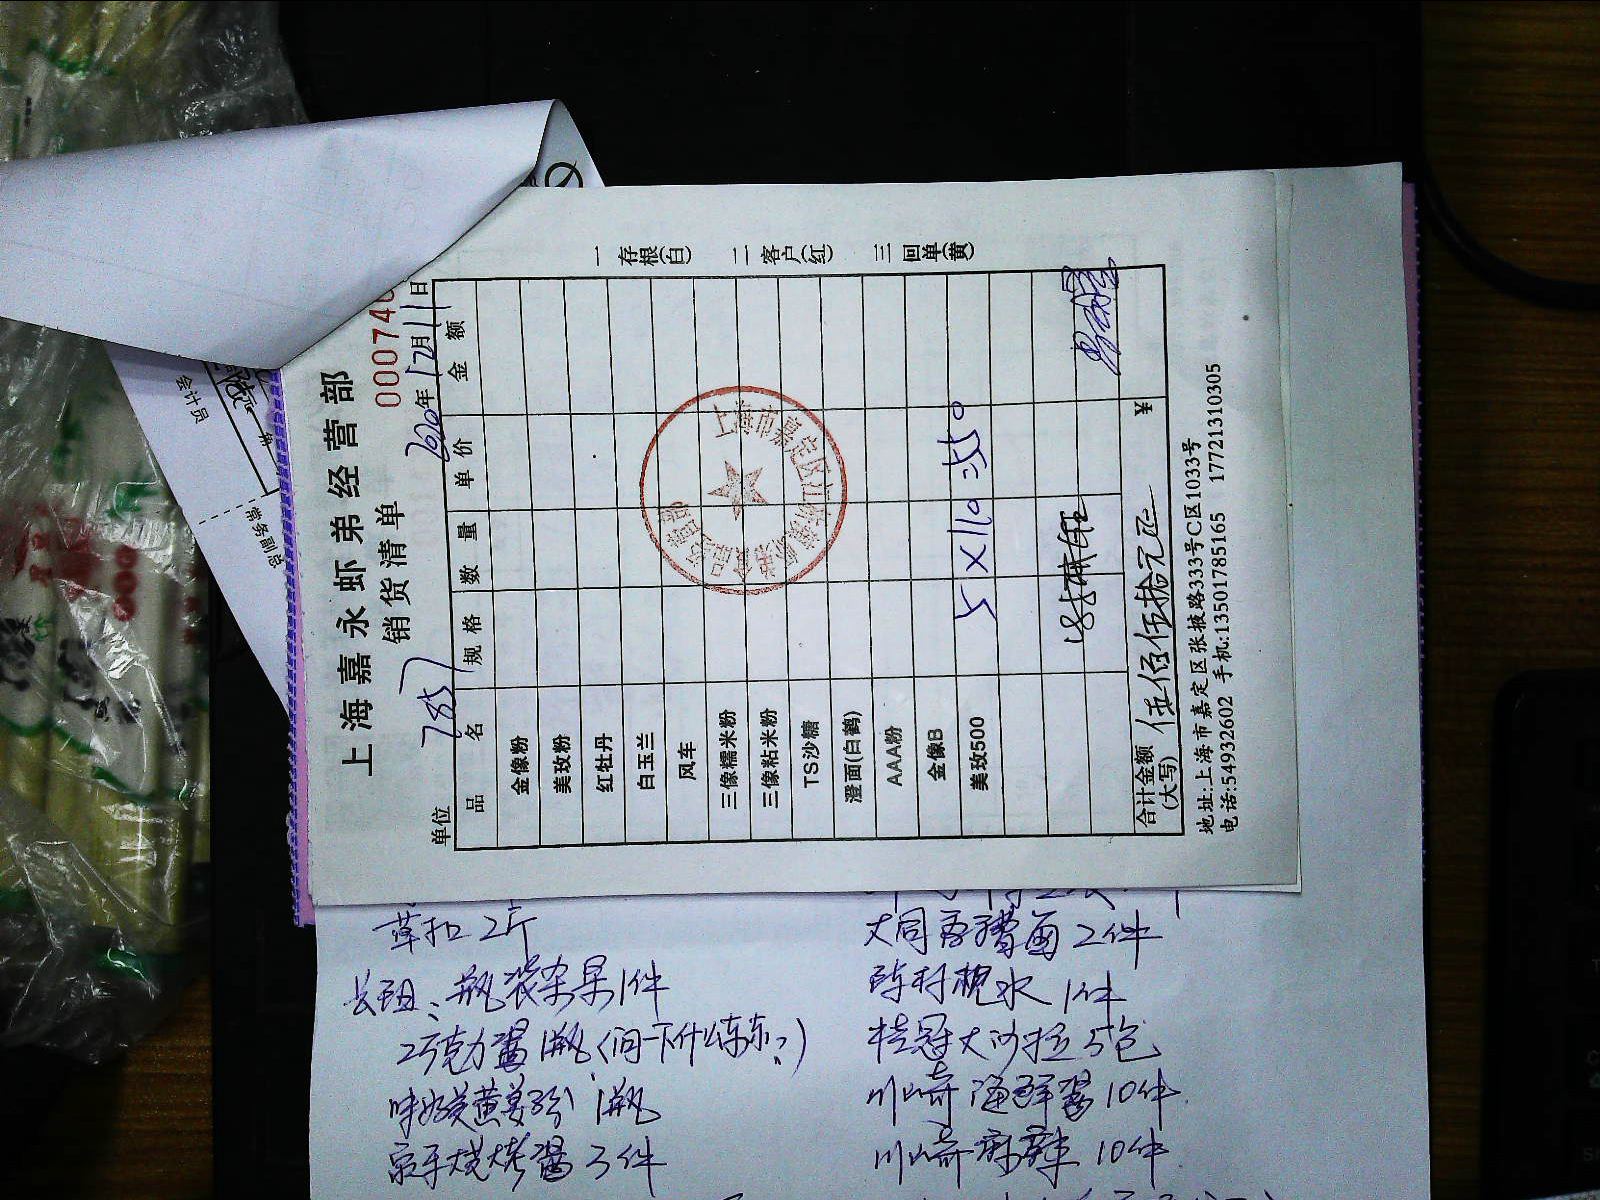 上海嘉永虾弟经营部
销货清单
000740
单位 785
2020年12月11日
品名 规格 数量 单价 金额
金像粉
美玫粉
红牡丹
白玉兰
风车
三像糯米粉
三像粘米粉
TS沙糖
澄面(白鹤)
AAA粉
金像B
美玫500 5 X110 =550
合计金额(大写) 伍佰伍拾元正 ¥
地址:上海市嘉定区张掖路333号C区1033号
电话:54932602 手机:13501785165 17721310305
一存根(白) 二客户(红) 三回单(黄)
会计员
常务副总
草扣 2斤
瓶装杂果1件
巧克力酱1瓶(问一下什么东东?)
味好美黄姜粉 1瓶
烧烤酱3件
2件
陈村枧水 1件
桂冠大沙拉5包
川崎海鲜酱10件
川崎麻辣 10件